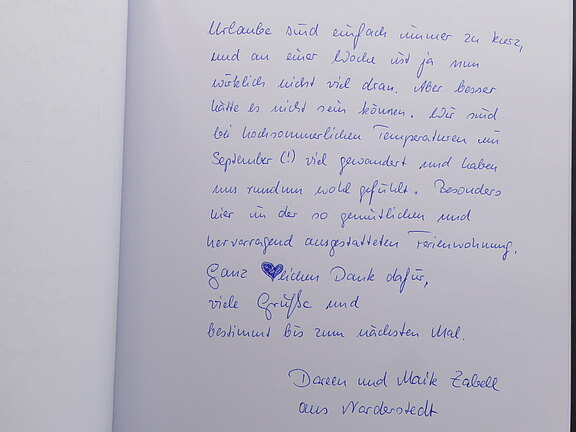 Urlaube sind einfach immer zu kurz,
und an einer Woche ist ja nun
wirklich nicht viel dran. Aber besser
hätte es nicht sein können. Wir sind
bei hochsommerlichen Temperaturen im
September (!) viel gewandert und haben
uns rundum wohl gefühlt. Besonders
hier in der so gemütlichen und
hervorragend ausgestatteten Ferienwohnung.
Ganz ♥lichen Dank dafür,
viele Grüße und
bestimmt bis zum nächsten Mal.
Doreen und Maik Zabell
aus Norderstedt